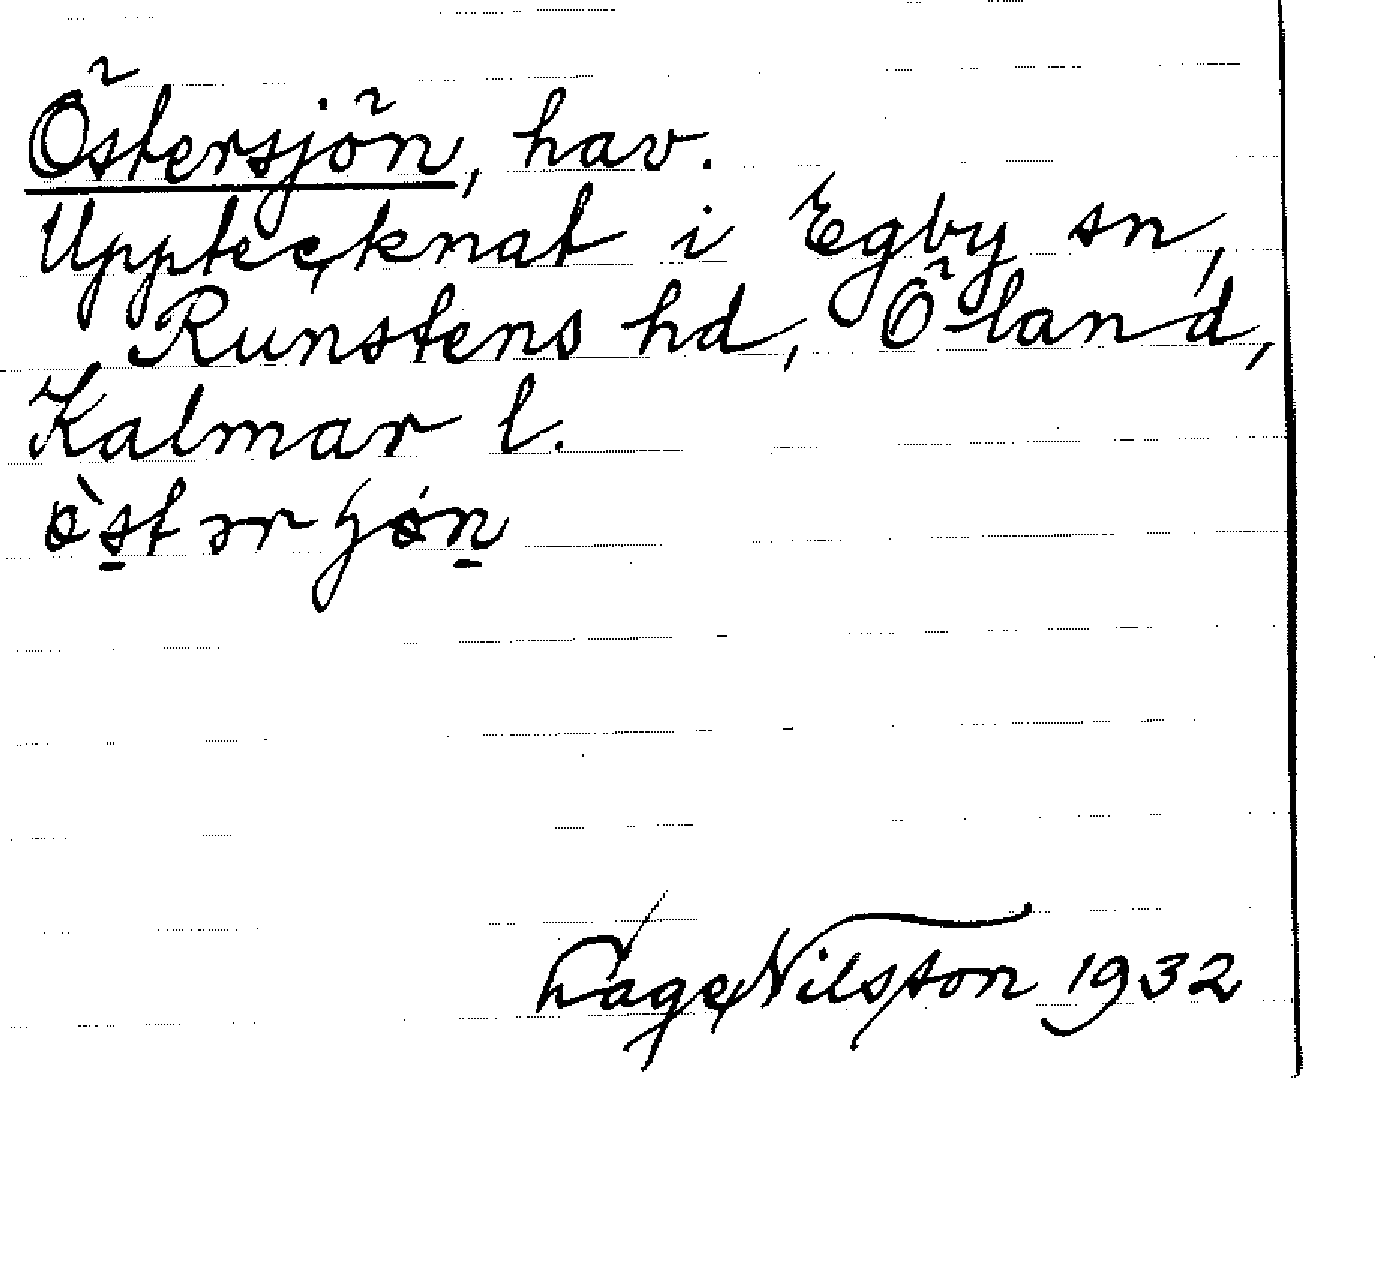 Östersjön, hav.
Upptecknat i Egby sn,
Runstens hd, Öland,
Kalmar l.
Lage Nilsson 1932